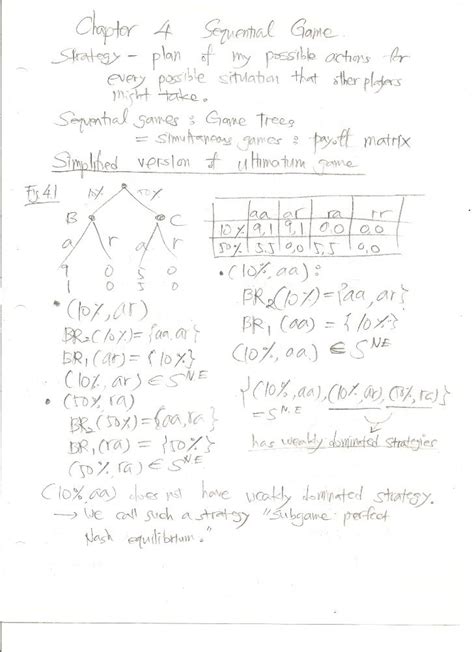 Chapter 4 Sequential Game.
Strategy – plan of my possible actions for
every possible situation that other players
might take.
Sequential games : Game Trees
= simultaneous games : payoff matrix
Simplified version of ultimatum game
Fig 4.1
10% 50%
B C
a r a r
9 0 5 0
1 0 5 0
aa ar ra rr
10% 9,1 9,1 0,0 0,0
50% 5,5 0,0 5,5 0,0
• (10%, ar)
BR₂(10%) = {aa, ar}
BR₁(ar) = {10%}
(10%, ar) ∈ S^NE
• (50%, ra)
BR₂(50%) = {aa, ra}
BR₁(ra) = {50%}
(50%, ra) ∈ S^NE
• (10%, aa) :
BR₂(10%) = {aa, ar}
BR₁(aa) = {10%}
(10%, aa) ∈ S^NE
{(10%, aa), (10%, ar), (50%, ra)}
= S^N.E
has weakly dominated strategies
(10%, aa) does not have weakly dominated strategy.
→ We call such a strategy "Subgame perfect
Nash equilibrium."